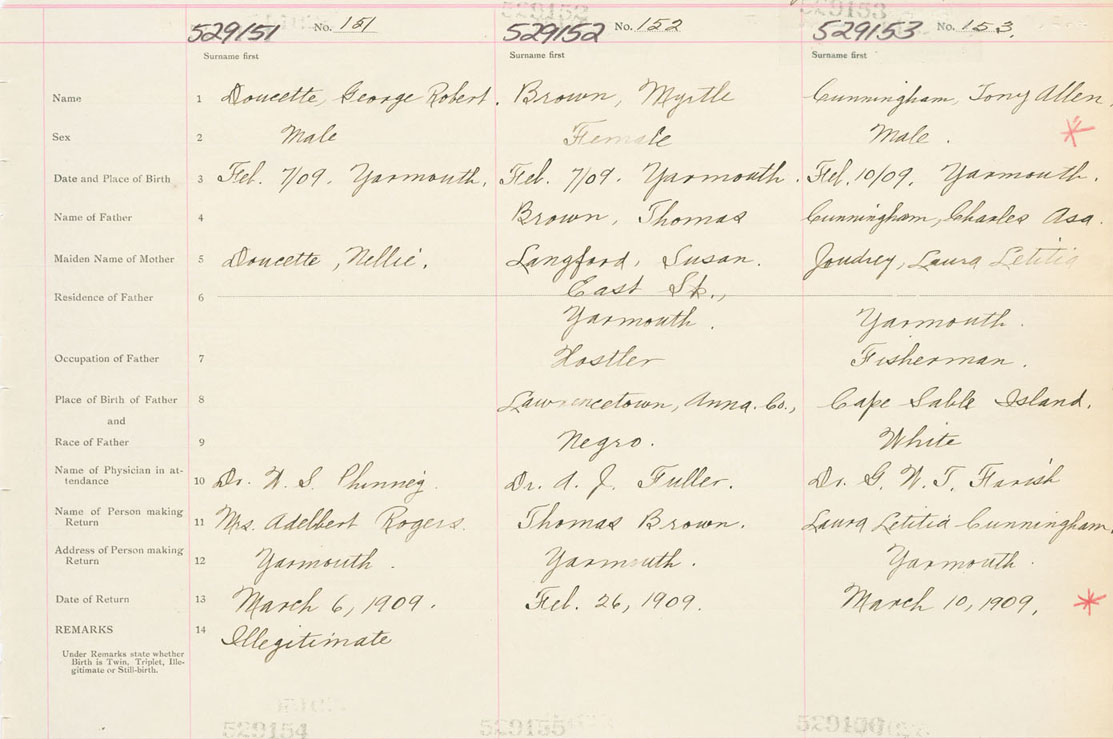 529151 No. 151 529152 No. 152 529153 No. 153.
Surname first Surname first Surname first
Name 1 Doucette, George Robert. Brown, Myrtle Cunningham, Tony Allen.
Sex 2 Male Female Male.
Date and Place of Birth 3 Feb. 7/09. Yarmouth. Feb. 7/09. Yarmouth. Feb. 10/09. Yarmouth.
Name of Father 4 Brown, Thomas Cunningham, Charles Asa.
Maiden Name of Mother 5 Doucette, Nellie. Langford, Susan. Joudrey, Laura Letitia
East St.,
Residence of Father 6 Yarmouth. Yarmouth.
Occupation of Father 7 Hostler Fisherman.
Place of Birth of Father 8 Lawrencetown, Anna. Co., Cape Sable Island.
and
Race of Father 9 Negro. White
Name of Physician in at-
tendance 10 Dr. W. S. Phinney. Dr. A. J. Fuller. Dr. G. W. T. Farish
Name of Person making
Return 11 Mrs. Adelbert Rogers. Thomas Brown. Laura Letitia Cunningham.
Address of Person making
Return 12 Yarmouth. Yarmouth. Yarmouth.
Date of Return 13 March 6, 1909. Feb. 26, 1909. March 10, 1909.
REMARKS 14 Illegitimate
Under Remarks state whether
Birth is Twin, Triplet, Ille-
gitimate or Still-birth.
529154 529155